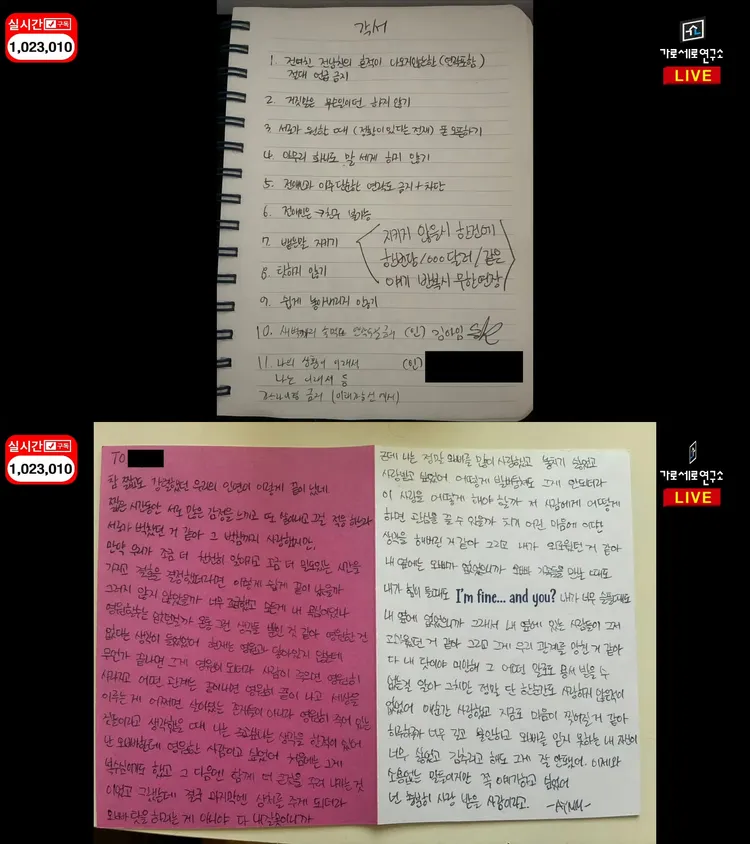 실시간 구독
1,023,010
가로세로연구소
LIVE
각서
1. 전여친 전남친의 흔적이 나오지않는한 (연락포함)
절대 언급 금지
2. 거짓말은 무슨일이던 하지 않기
3. 서로가 원할 때 (전화기있다는 전제) 폰 오픈하기
4. 아무리 화나도 말 세게 하지 않기
5. 전애인과 아주 단순한 연락도 금지 + 차단
6. 전애인은 → 친구 불가능
7. 뱉은말 지키기
8. 탓하지 않기
9. 쉽게 놓아버리지 않기
지키지 않을시 한건에
한번당 1000달러 / 같은
얘기 반복시 무한연장
10. 새벽까지 술먹고 연속 금지 (인) 김아임
11. 나의 상황이 이래서 (인)
나는 이래서 등
금지
실시간 구독
1,023,010
가로세로연구소
LIVE
TO
참 짧고도 강렬했던 우리의 인연이 이렇게 끝이 났네
짧은 시간동안 서로 많은 감정을 느끼고 또 그런 적응 하느라
서로가 벅찼던 거 같아 그 벅참까지 사랑했지만,
만약 우리가 조금 더 천천히 알아가고 조금 더 밀도있는 시간을
가지고 결혼을 결정했더라면 이렇게 쉽게 끝이 났을까
그러지 않지 않았을까 너무 조급했고 모든게 내 욕심이었나
영원하자는 온통 그런 생각들 뿐인 것 같아 영원한 건
없다는 생각이 들었었어 현재는 영원과 닿아있지 않는데
무언가 끝나면 그게 영원이 되더라 사람이 죽으면 영원히
사라지고 어떤 관계는 끝이나면 영원히 끝이 나고 세상을
이루는 게 어쩌면 살아있는 존재들이 아니라 영원히 죽어 있는
것들이라고 생각했을 때 나는 죽고싶다는 생각을 한적이 있어
난 오빠한테 영원한 사람이고 싶었어 처음에는 그게
복수심이기도 했고 그 다음엔 함께 더 큰것을 주려 나가는 것
이었고 그랬는데 결국 마지막엔 상처를 주게 되더라
오빠 탓을 하려는 게 아니야 다 내잘못이니까
근데 나는 정말 오빠를 많이 사랑했고 놓치기 싫었고
사랑받고 싶었어 어떻게 발버둥쳐도 그게 안되더라
이 사람을 어떻게 해야 할까 저 사람에게 어떻게
하면 관심을 줄 수 있을까 치기 어린 마음에 이런
생각을 해버린 거 같아 그리고 내가 외로웠던 거 같아
내 옆에는 오빠가 없었으니까 오빠 지인들을 만날 때도
내가 힘이 들때도 I'm fine... and you? 내가 너무 슬플때도
내 옆에 없었으니까 그래서 내 옆에 있는 사람들이 그저
고마웠던 거 같아 그리고 그게 우리 관계를 망친 거 같아
다 내 탓이야 미안해 그 어떤 말로도 용서 받을 수
없는걸 알아 그치만 정말 단 한순간도 사랑하지 않은적이
없었어 매순간 사랑했고 지금도 마음이 찢어질 거 같아
하루하루가 너무 길고 불안하고 오빠를 믿지 못하는 내 자신이
너무 싫었고 감추려고 해도 그게 잘 안됐어. 이제와
소용없는 말들이지만 꼭 얘기하고 싶었어
넌 충분히 사랑 받을 사람이라고.